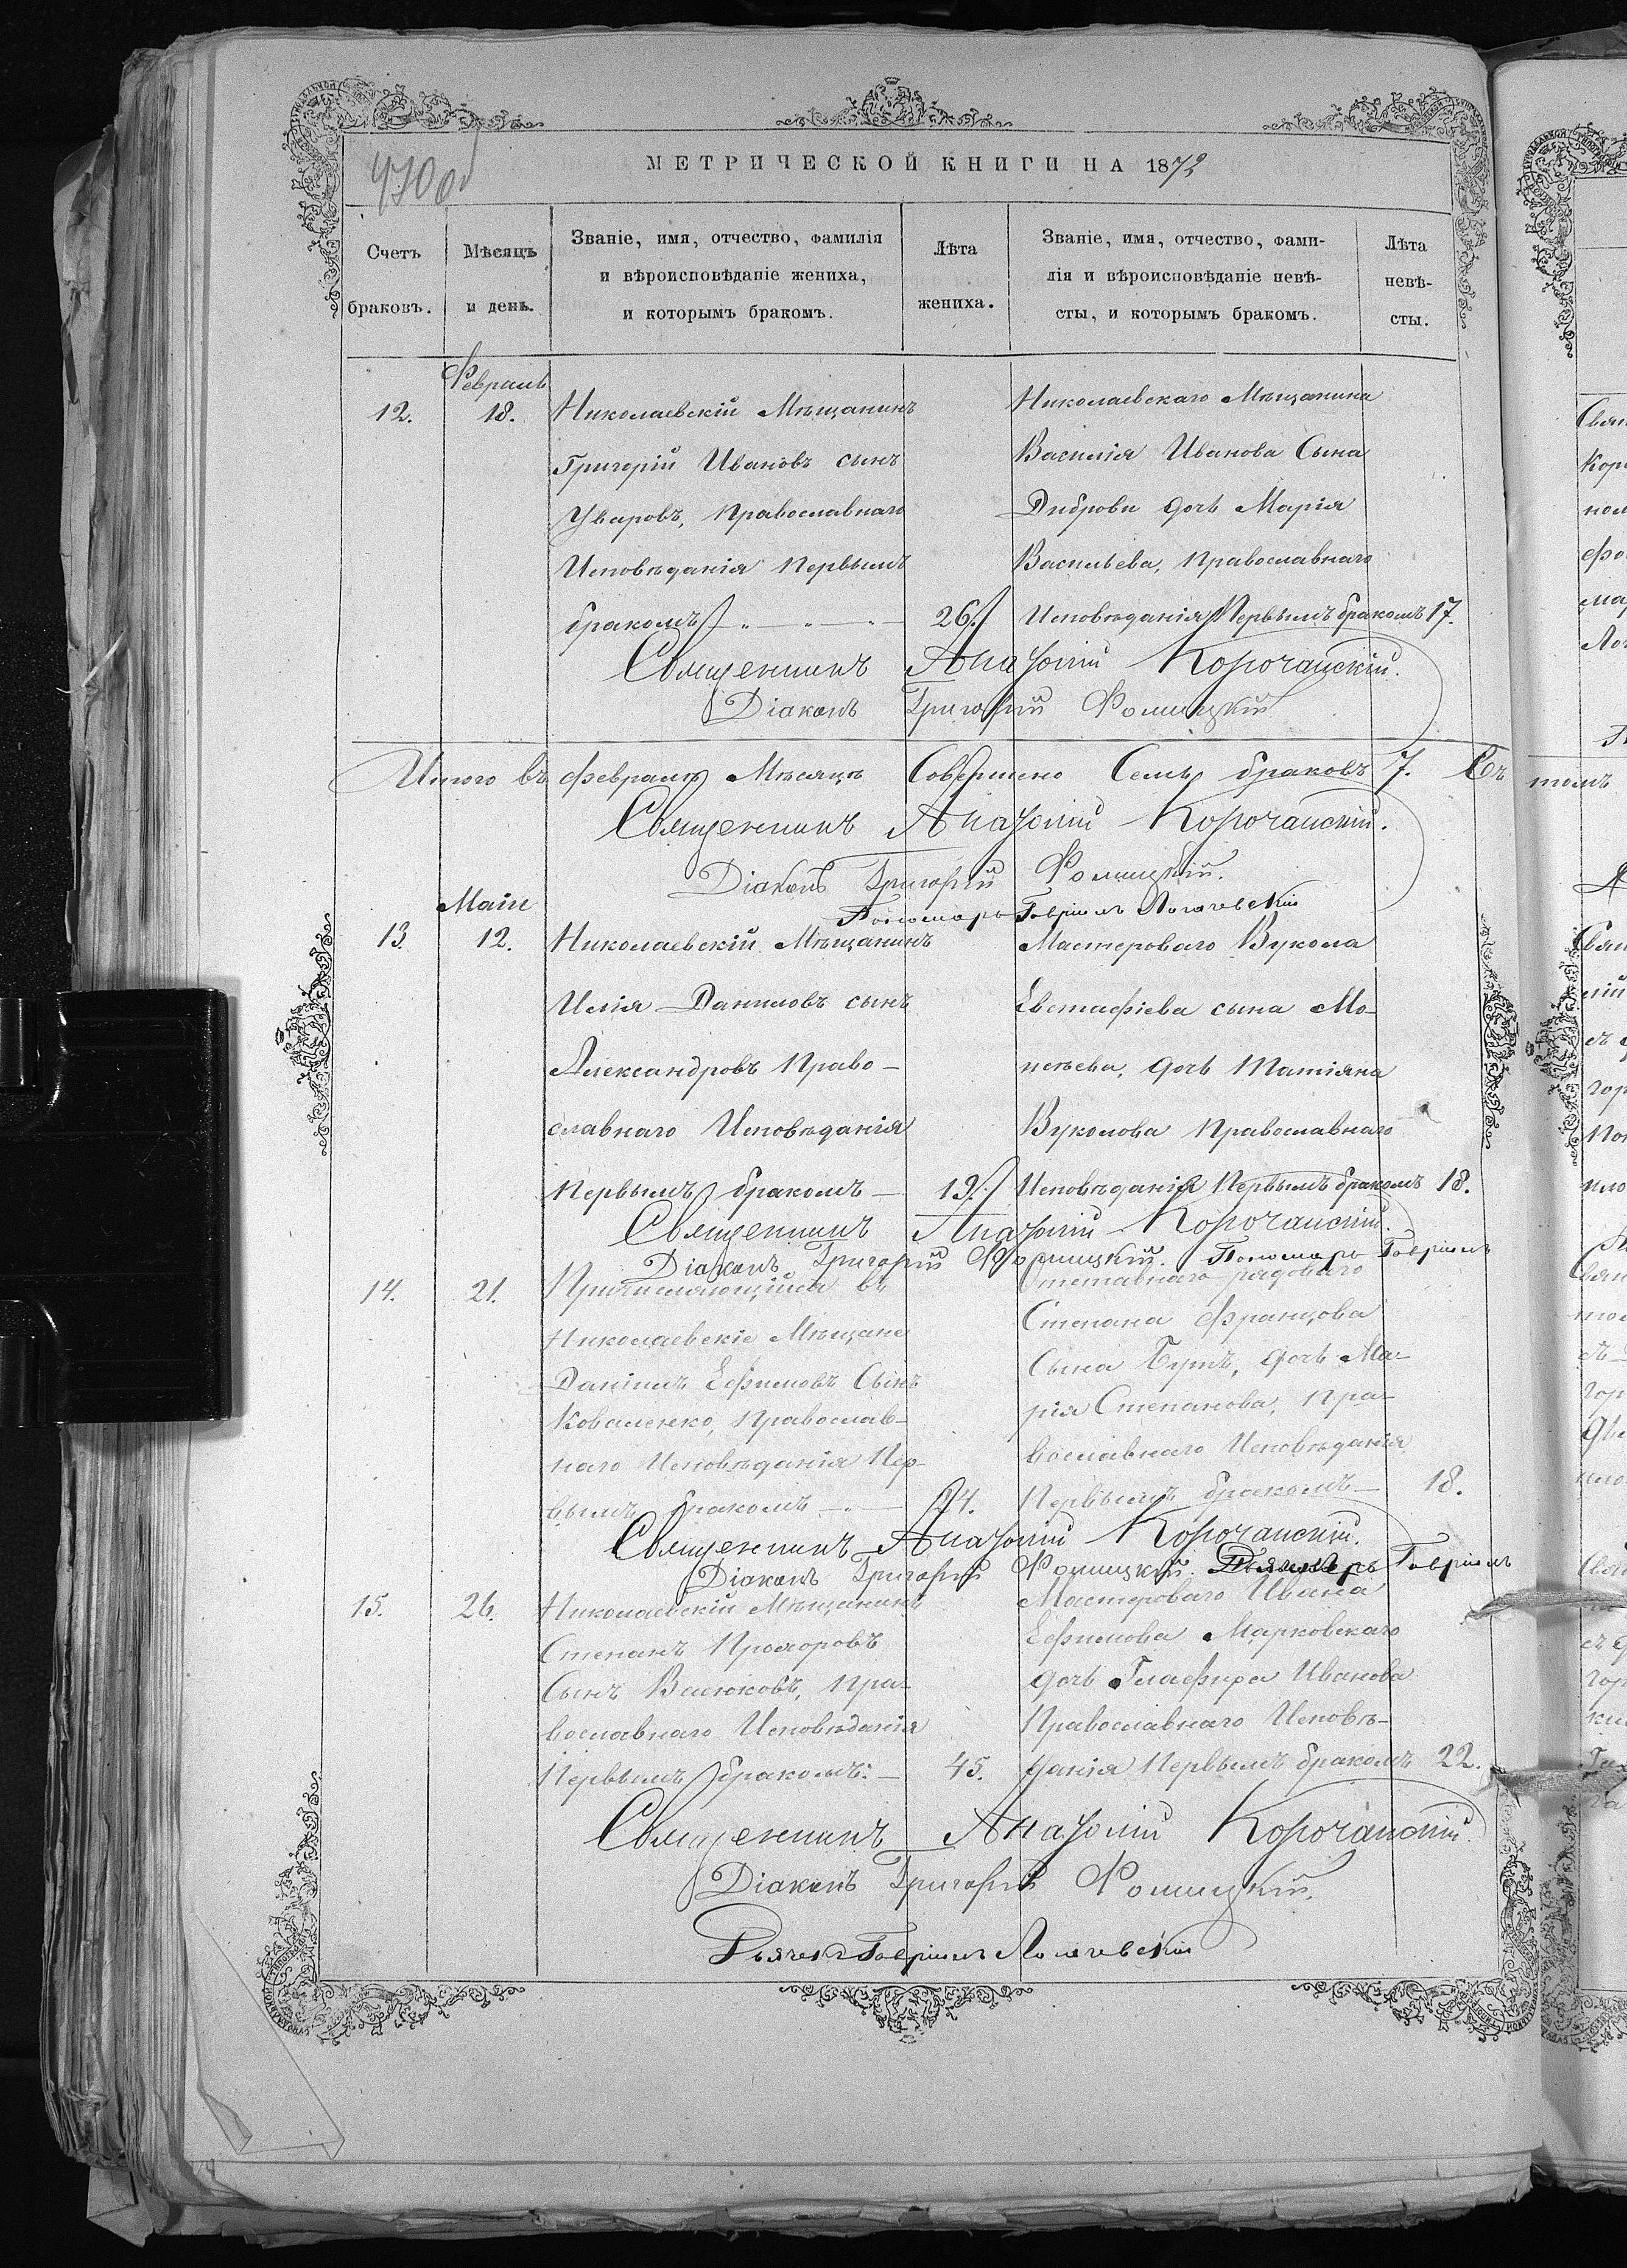 470 об
МЕТРИЧЕСКОЙ КНИГИ НА 1872
Счетъ браковъ.
Мѣсяцъ и день.
Званіе, имя, отчество, фамилія
и вѣроисповѣданіе жениха,
и которымъ бракомъ.
Лѣта жениха.
Званіе, имя, отчество, фами-
лія и вѣроисповѣданіе невѣ-
сты, и которымъ бракомъ.
Лѣта невѣ-
сты.
Февраль
12.
18.
Николаевскій Мѣщанинъ
Григорій Ивановъ сынъ
Уваровъ, Православнаго
Исповѣданія Первымъ
бракомъ
26.
Николаевскаго Мѣщанина
Василія Иванова Сына
Диброви дочь Марія
Васильева, Православнаго
Исповѣданія Первымъ бракомъ
17.
Священникъ Анатолій Корочанскій.
Діаконъ Григорій Фомицкій
Итого въ февралѣ Мѣсяцѣ Совершено Семь браковъ 7. Въ томъ
Священникъ Анатолій Корочанскій.
Діаконъ Григорій Фомицкій.
Пономарь Гавріилъ Логачевскій
Маіи
13.
12.
Николаевскій Мѣщанинъ
Илія Даниловъ сынъ
Александровъ Право-
славнаго Исповѣданія
Первымъ бракомъ
19.
Мастероваго Вукола
Евстафіева сына Мо-
исѣева, дочь Татіяна
Вуколова Православнаго
Исповѣданія Первымъ бракомъ
18.
Священникъ Анатолій Корочанскій.
Діаконъ Григорій Фомицкій. Пономарь Гавріилъ
14.
21.
Причисляющійся въ
Николаевскіе Мѣщане
Даніилъ Ефимовъ Сынъ
Коваленко, Православ-
наго Исповѣданія Пер-
вымъ бракомъ
24.
Отставнаго рядоваго
Степана Францова
Сына дочь Ма-
рія Степанова, Пра-
вославнаго Исповѣданія
Первымъ бракомъ
18.
Священникъ Анатолій Корочанскій.
Діаконъ Григорій Фомицкій. Гавріилъ
15.
26.
Николаевскій Мѣщанинъ
Степанъ Прохоровъ
Сынъ Васюковъ, Пра-
вославнаго Исповѣданія
Первымъ бракомъ:
45.
Мастероваго Ивана
Ефимова Марковскаго
дочь Глафира Иванова
Православнаго Исповѣ-
данія Первымъ бракомъ
22.
Священникъ Анатолій Корочанскій.
Діаконъ Григорій Фомицкій.
Дьячекъ Гавріилъ Логачевскій